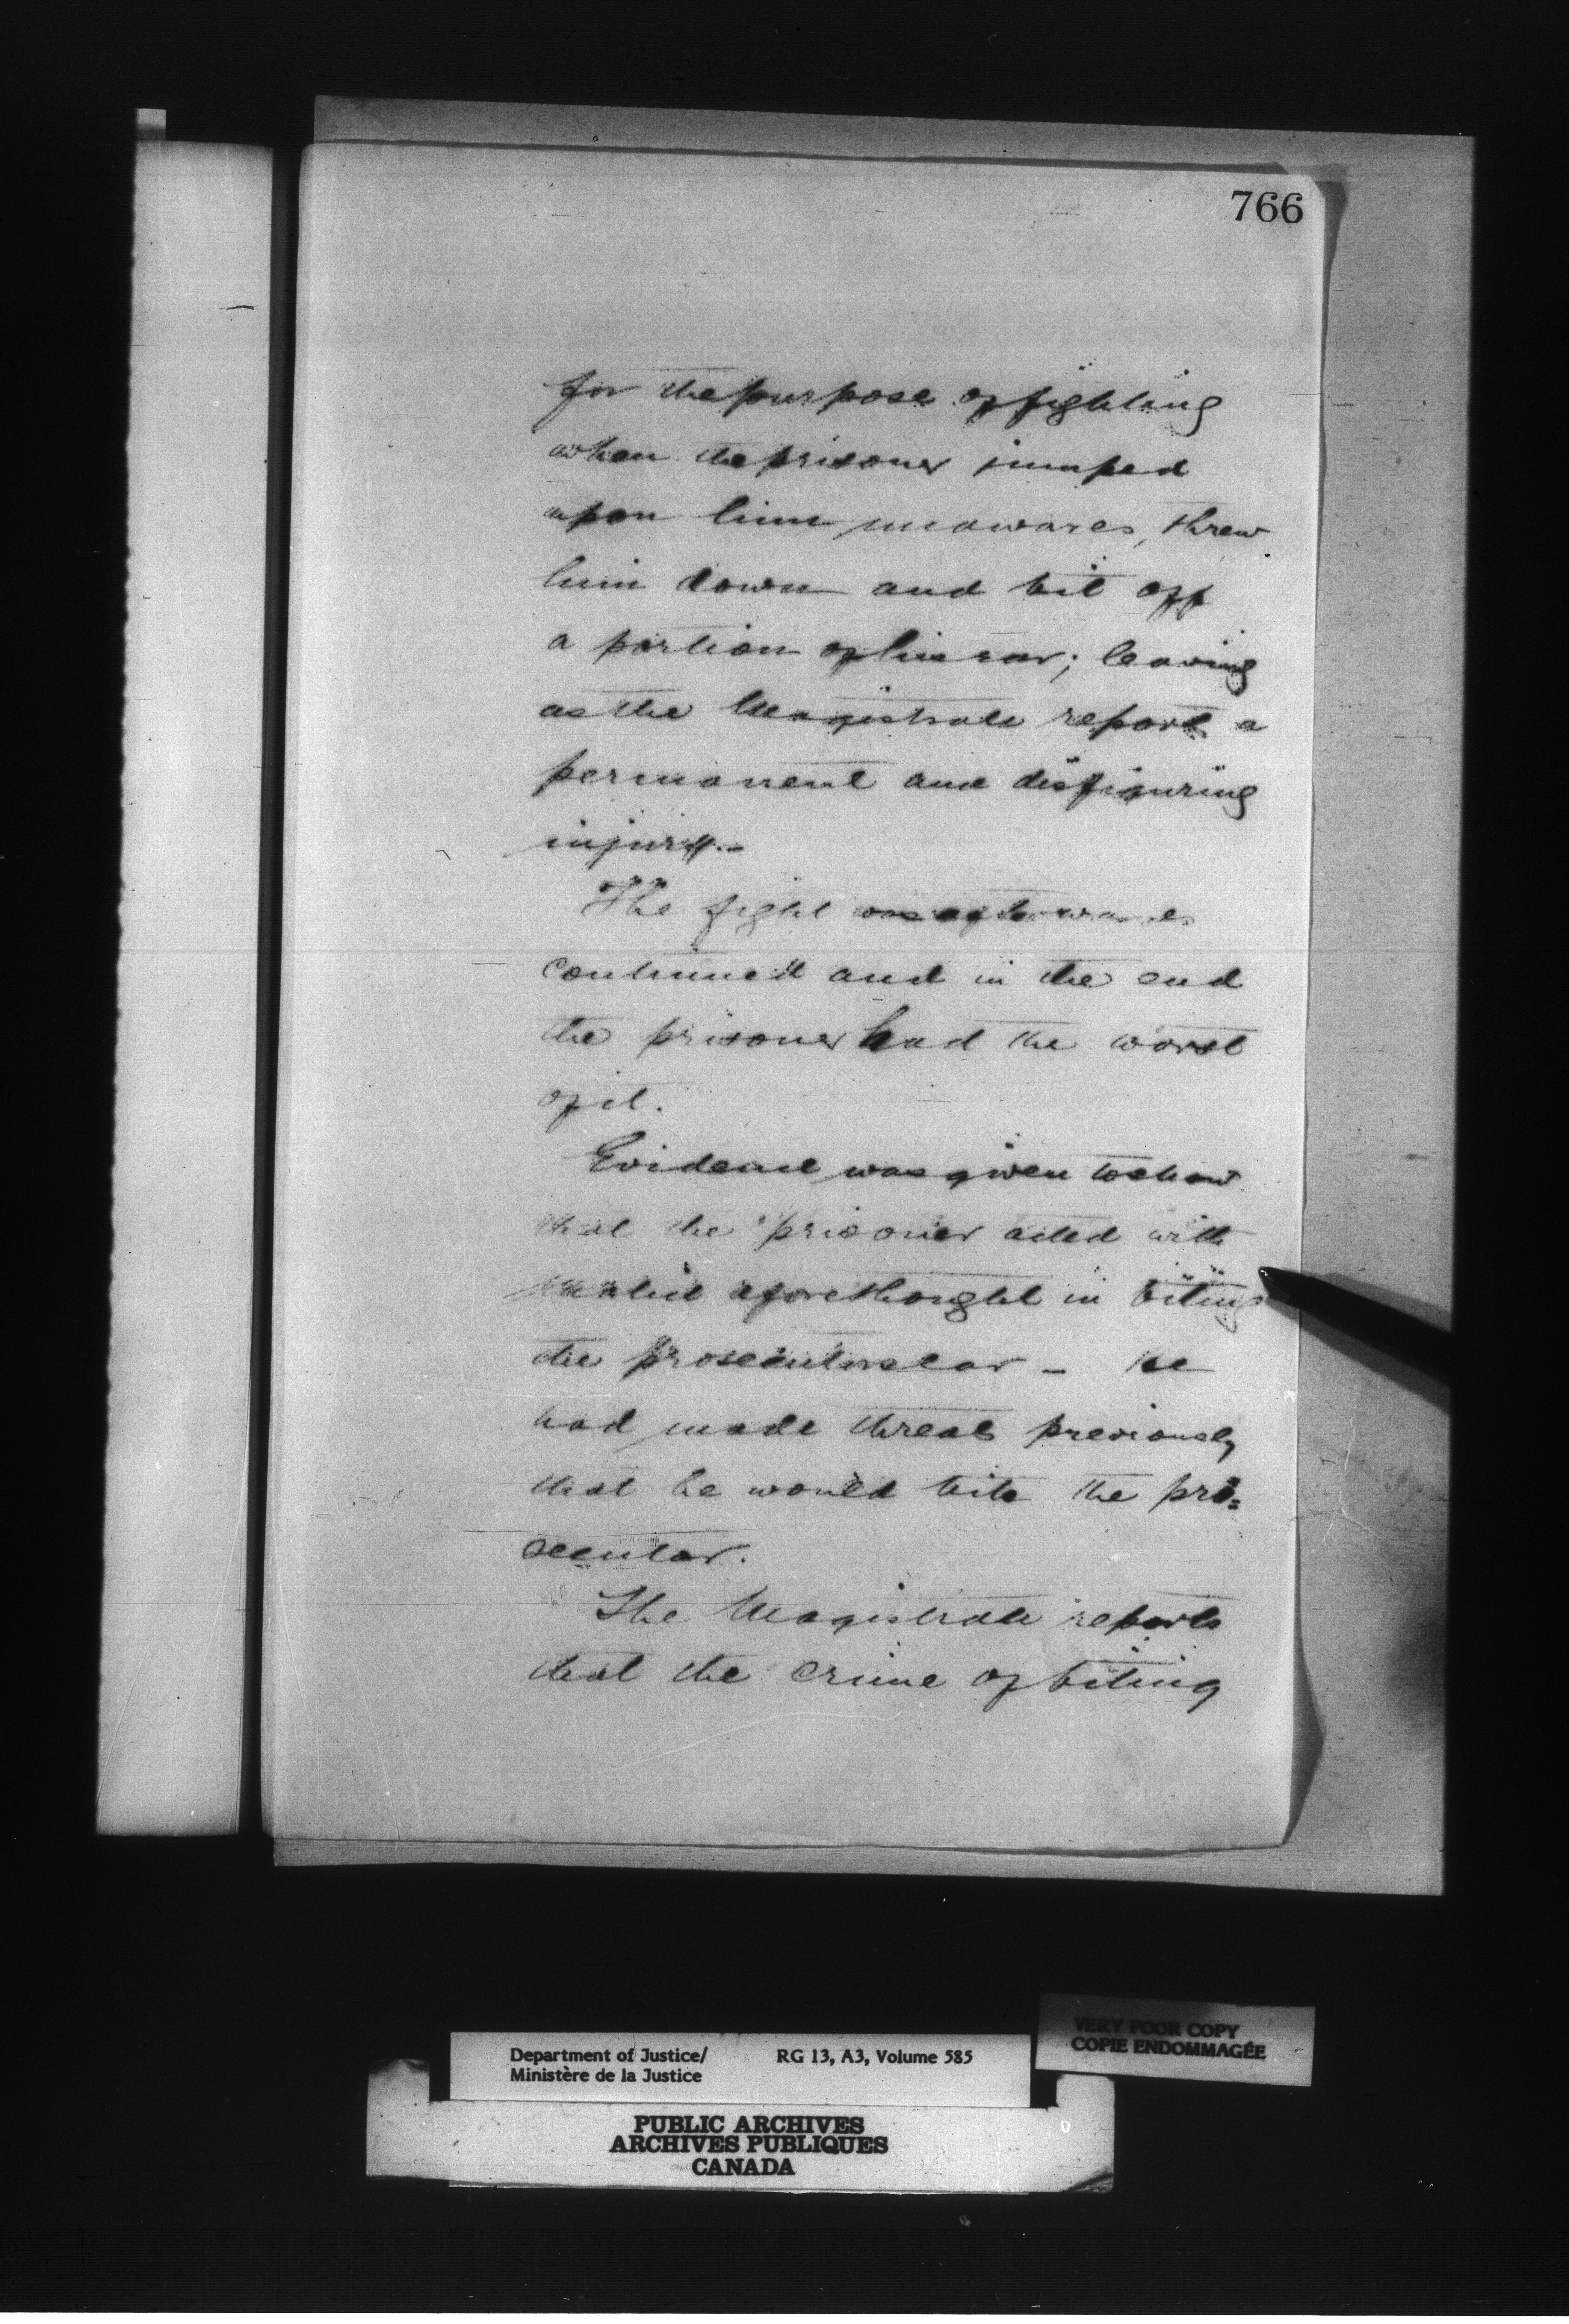 766
for the purpose of fighting
when the prisoner jumped
upon him unawares, threw
him down and bit off
a portion of his ear; leaving
as the Magistrate reports a
permanent and disfiguring
injury.-
The fight was afterwards
continued and in the end
the prisoner had the worst
of it.
Evidence was given to show
that the prisoner acted with
malice aforethought in biting
the prosecutors ear - he
had made threats previously
that he would bite the pro=
secutor.
The Magistrate reports
that the crime of biting
VERY POOR COPY
COPIE ENDOMMAGÉE
Department of Justice/ RG 13, A3, Volume 585
Ministère de la Justice
PUBLIC ARCHIVES
ARCHIVES PUBLIQUES
CANADA